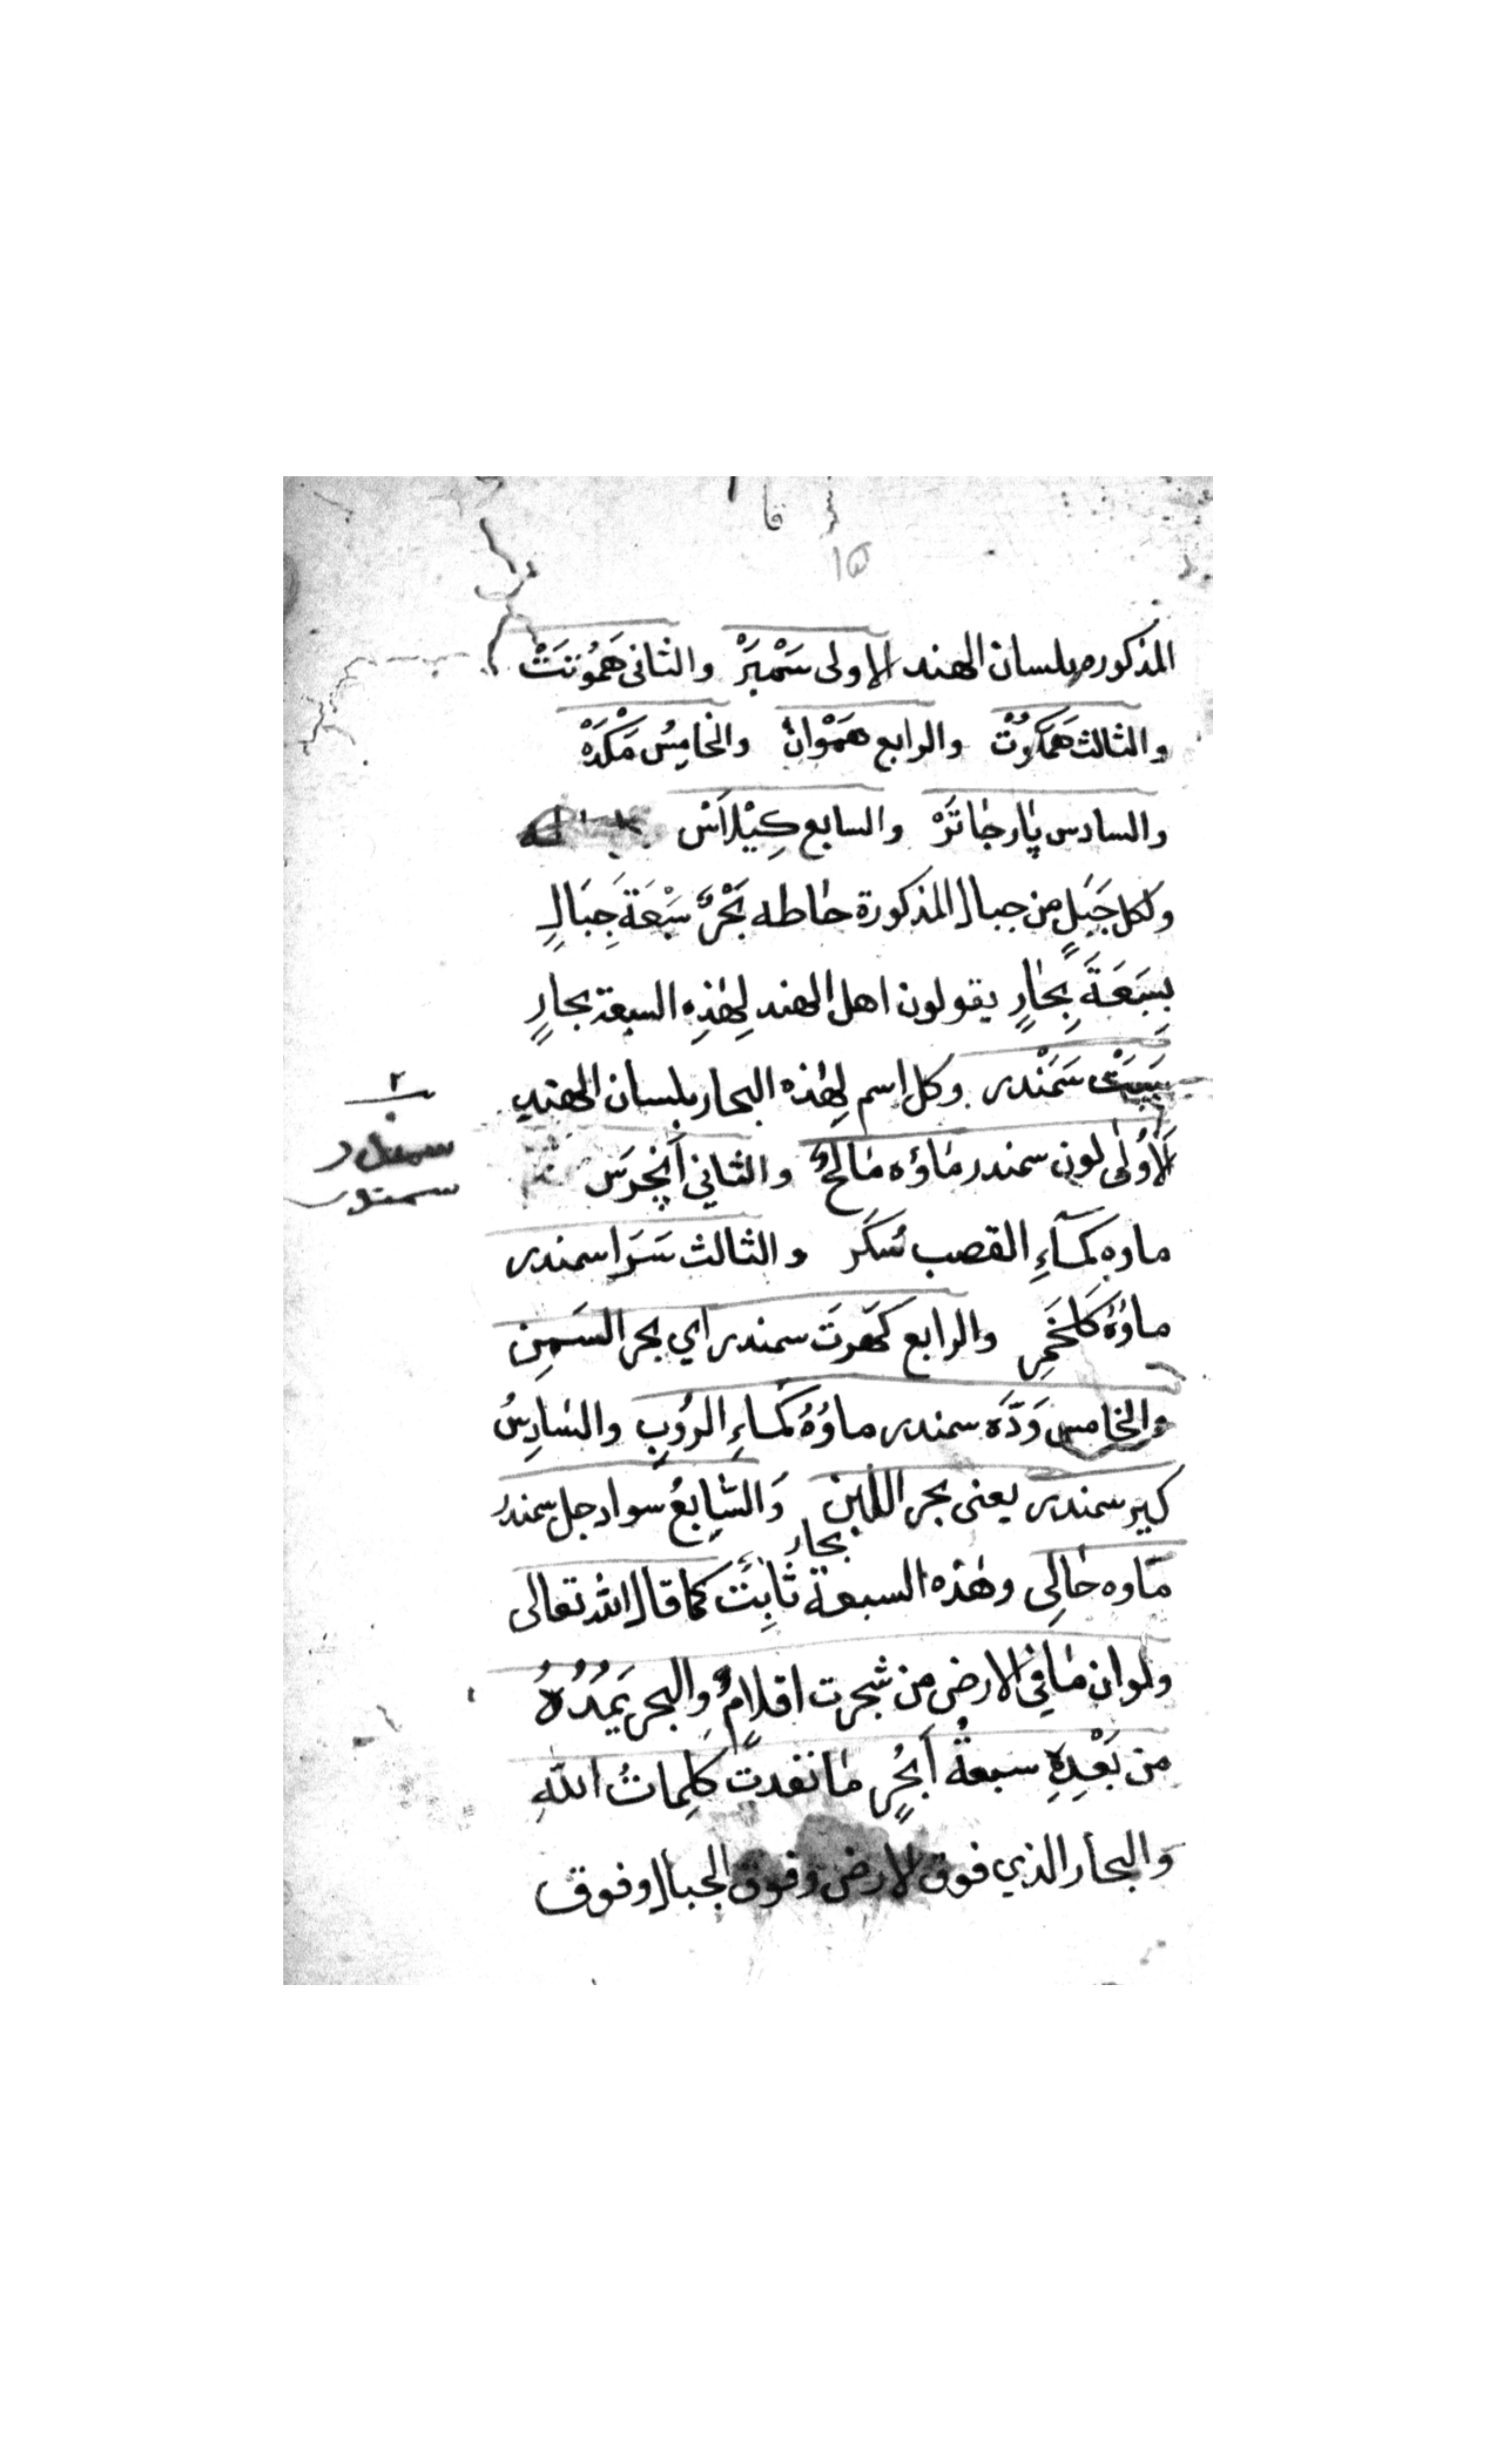 المذكوره بلسان الهند الاولى سَمْبَرْ والثانى هَمُونَتْ
والثالث هَمَكُوتْ والرابع هَمْوَانْ والخامِسُ مَكْدَهْ
والسادس پارجاتَرْ والسابع كِيْلاَسْ
ولكل جَبَلٍ من جبال المذكورة حاطه بَحْرٌ سَبْعَةَ جِبَالٍ
بِسَبَعَةَ بِحَارٍ يقولون اهل الهند لِهٰذِهِ السبعة بحارٍ
سَمَندر وكل اسم لِهٰذه البحار بلسان الهندِ
سمندر
سمندر
لاُولٰى لون سمندر ماؤه مالحٌ والثاني اَنچرَسَ
ماوه كمآءِ القصب سُكَّر والثالث سَرَا سمندر
ماؤهُ كالخَمِرِ والرابع كَهَرتَ سمندر اي بحر السَمِن
والخامس وَدَّه سمندر ماؤُهُ كَماءِ الرُوبِ والسادِسُ
كير سمندر يعنى بحر اللبن وَالسَّابِعُ سواد جل سمندر
مَاوه حالِى وهٰذه السبعة بحار ثَابِتَ كما قال الله تعالى
ولو ان ما في الارض من شجرت اقلامٌ والبحر يَمُدُّهُ
من بَعْدِهِ سبعةُ اَبْحُرٍ ما نفدت كَلِماتُ اللهِ
وَالبحار الذي فوق لارض وفوق الجبال وفوق